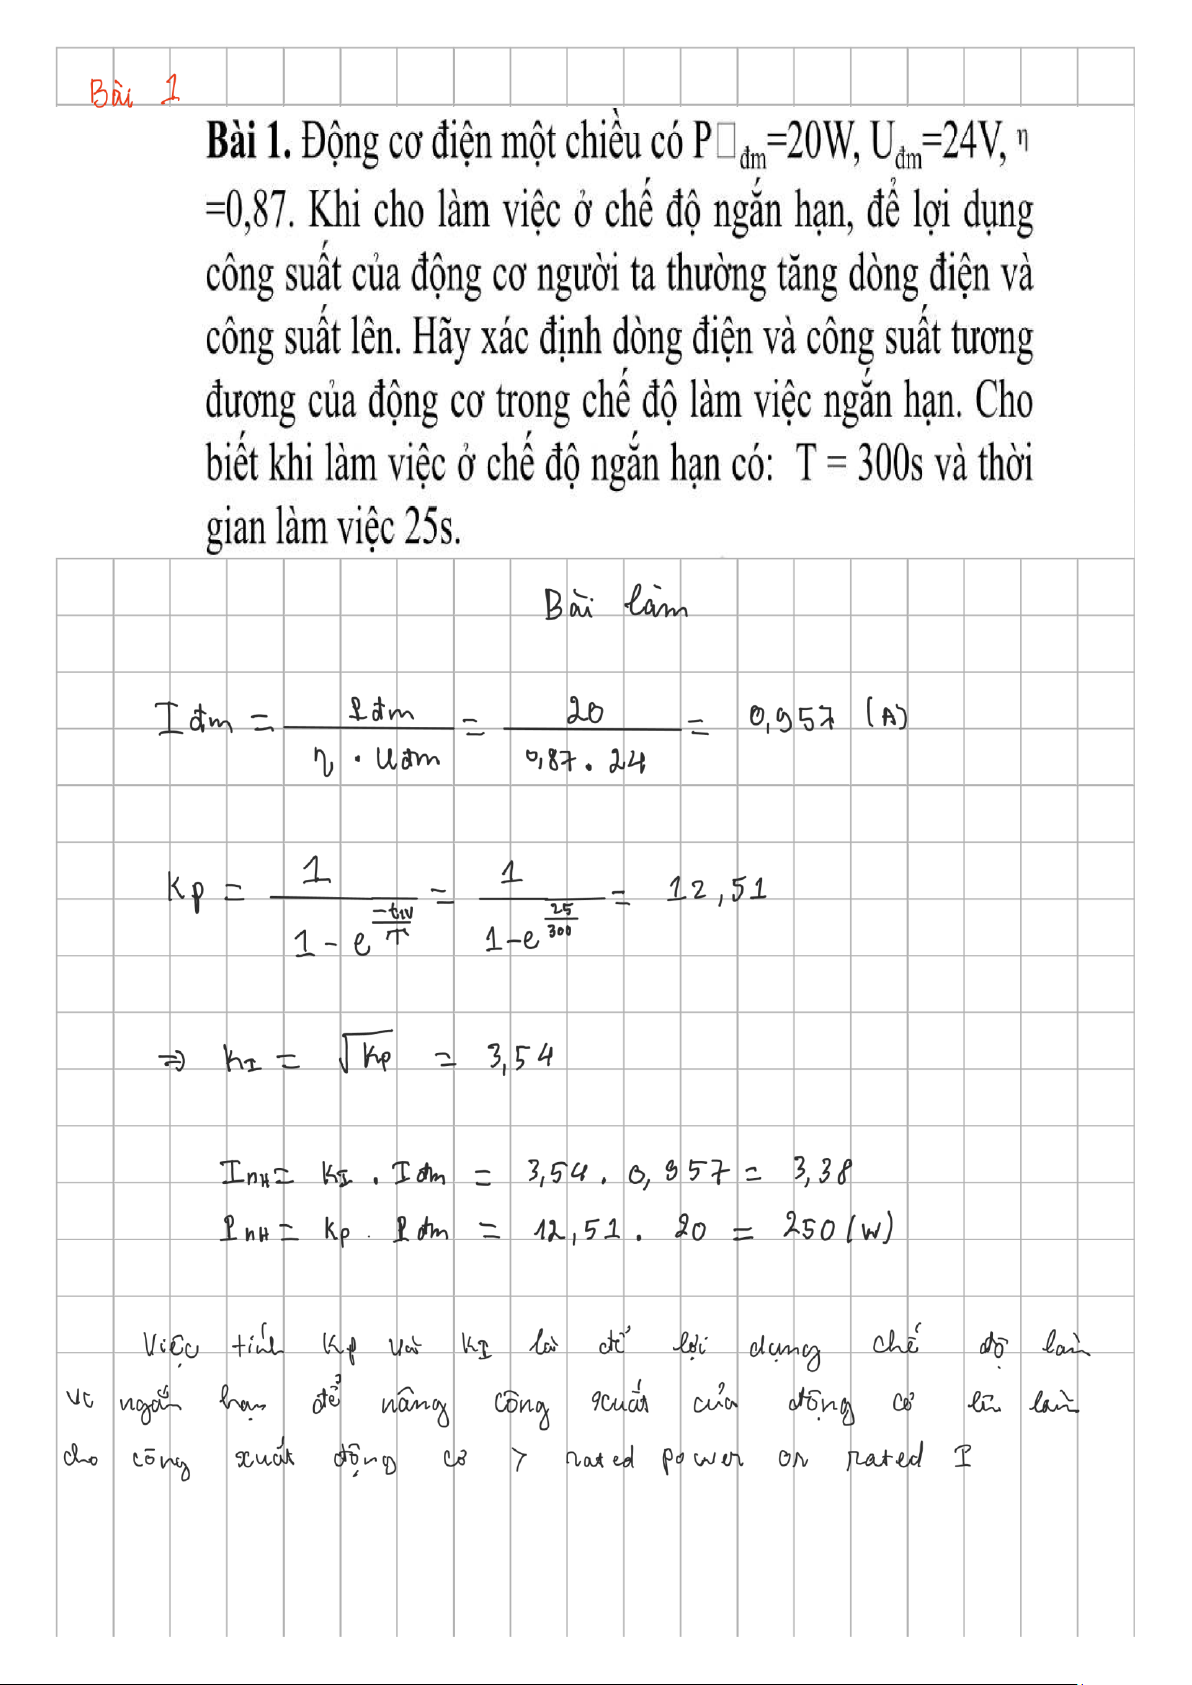 Bài 1
Bài 1. Động cơ điện một chiều có P□đm=20W, Uđm=24V, η
=0,87. Khi cho làm việc ở chế độ ngắn hạn, để lợi dụng
công suất của động cơ người ta thường tăng dòng điện và
công suất lên. Hãy xác định dòng điện và công suất tương
đương của động cơ trong chế độ làm việc ngắn hạn. Cho
biết khi làm việc ở chế độ ngắn hạn có: T = 300s và thời
gian làm việc 25s.
Bài làm
Iđm = Pđm / (η . Uđm) = 20 / (0,87 . 24) = 0,957 (A)
Kp = 1 / (1 - e^(-tlv/T)) = 1 / (1 - e^(25/300)) = 12,51
⇒ KI = √Kp = 3,54
InH = KI . Iđm = 3,54 . 0,957 = 3,38
PnH = Kp . Pđm = 12,51 . 20 = 250 (W)
Việc tính Kp và KI là để lợi dụng chế độ làm
vc ngắn hạn để nâng công xuất của động cơ lên làm
cho công xuất động cơ > rated power or rated I